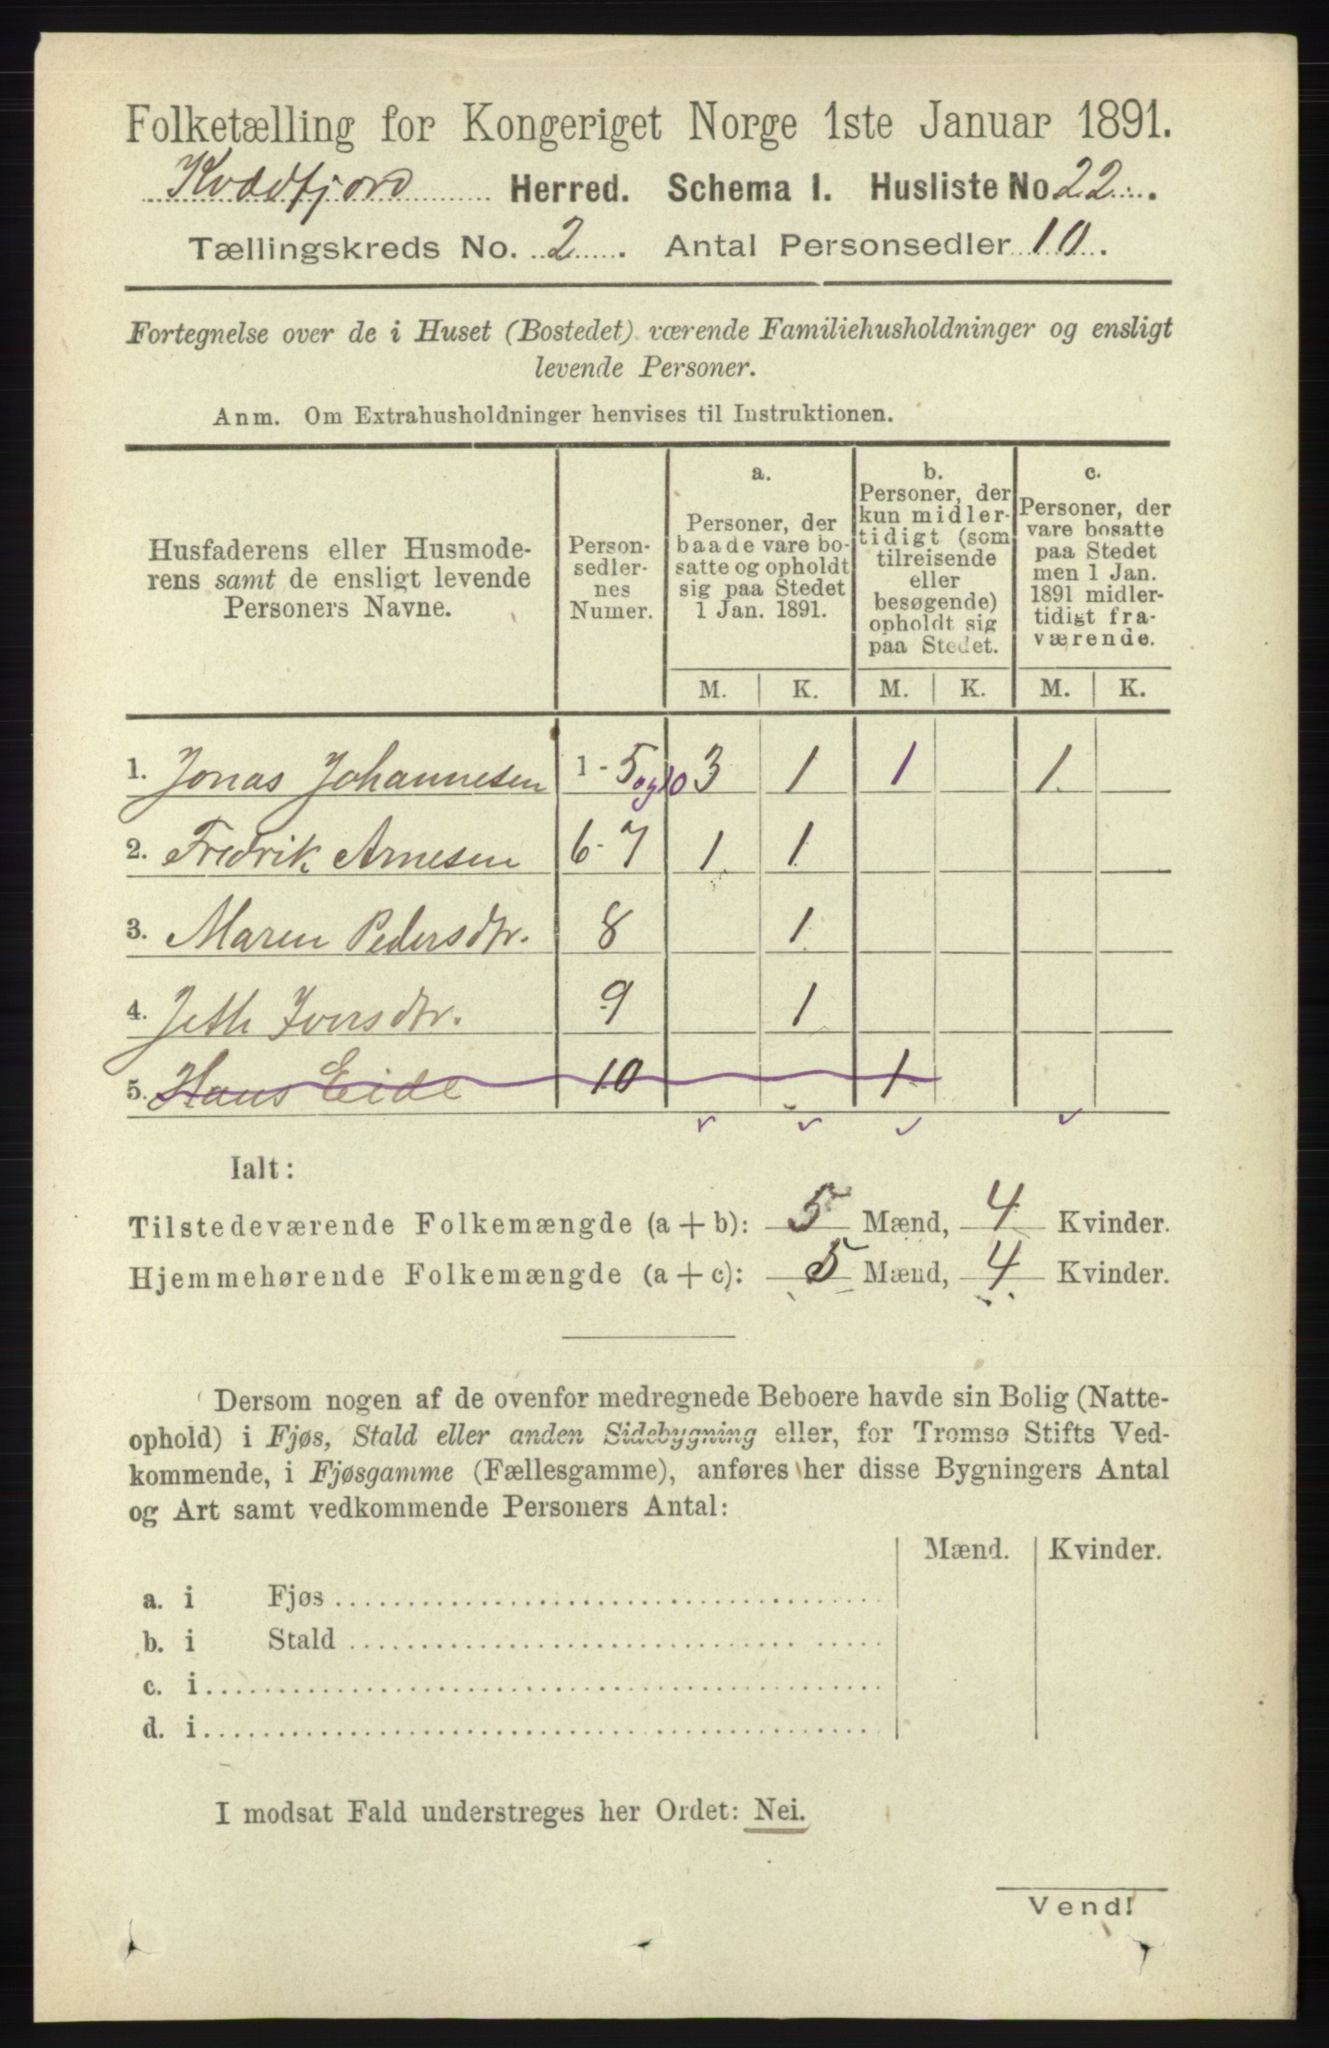 Folketælling for Kongeriget Norge 1ste Januar 1891.
Kvædfjord Herred. Schema I. Husliste No. 22.
Tællingskreds No. 2. Antal Personsedler 10.
Fortegnelse over de i Huset (Bostedet) værende Familiehusholdninger og ensligt
levende Personer.
Anm. Om Extrahusholdninger henvises til Instruktionen.
Husfaderens eller Husmode-
rens samt de ensligt levende
Personers Navne.
Person-
sedler-
nes
Numer.
a.
Personer, der
baade vare bo-
satte og opholdt
sig paa Stedet
1 Jan. 1891.
b.
Personer, der
kun midler-
tidigt (som
tilreisende
eller
besøgende)
opholdt sig
paa Stedet.
c.
Personer, der
vare bosatte
paa Stedet
men 1 Jan.
1891 midler-
tidigt fra-
værende.
M. K. M. K. M. K.
1. Jonas Johannesen 1-5 og 10 3 1 1 1
2. Fredrik Arnesen 6-7 1 1
3. Maren Pedersdtr. 8 1
4. Jeth Iversdtr. 9 1
5. Hans Eide 10 1
Ialt:
Tilstedeværende Folkemængde (a + b): 5 Mænd, 4 Kvinder.
Hjemmehørende Folkemængde (a + c): 5 Mænd, 4 Kvinder.
Dersom nogen af de ovenfor medregnede Beboere havde sin Bolig (Natte-
ophold) i Fjøs, Stald eller anden Sidebygning eller, for Tromsø Stifts Ved-
kommende, i Fjøsgamme (Fællesgamme), anføres her disse Bygningers Antal
og Art samt vedkommende Personers Antal:
Mænd. Kvinder.
a. i Fjøs
b. i Stald
c. i
d. i
I modsat Fald understreges her Ordet: Nei.
Vend!